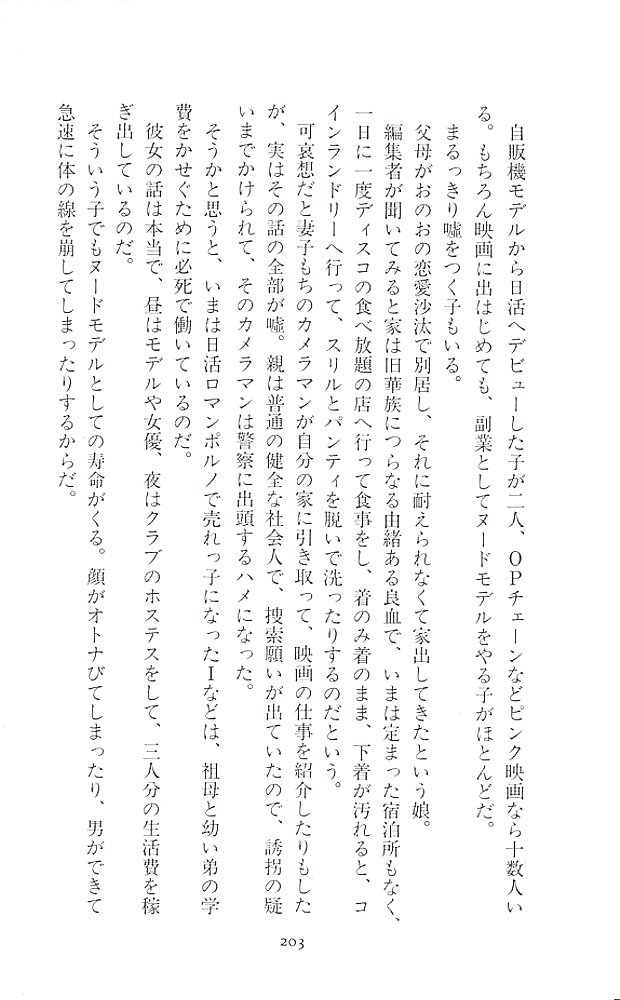 自販機モデルから日活へデビューした子が二人、OPチェーンなどピンク映画なら十数人い
る。もちろん映画に出はじめても、副業としてヌードモデルをやる子がほとんどだ。
まるっきり嘘をつく子もいる。
父母がおのおの恋愛沙汰で別居し、それに耐えられなくて家出してきたという娘。
編集者が聞いてみると家は旧華族につらなる由緒ある良血で、いまは定まった宿泊所もなく、
一日に一度ディスコの食べ放題の店へ行って食事をし、着のみ着のまま、下着が汚れると、コ
インランドリーへ行って、スリルとパンティを脱いで洗ったりするのだという。
可哀想だと妻子もちのカメラマンが自分の家に引き取って、映画の仕事を紹介したりもした
が、実はその話の全部が嘘。親は普通の健全な社会人で、捜索願いが出ていたので、誘拐の疑
いまでかけられて、そのカメラマンは警察に出頭するハメになった。
そうかと思うと、いまは日活ロマンポルノで売れっ子になったIなどは、祖母と幼い弟の学
費をかせぐために必死で働いているのだ。
彼女の話は本当で、昼はモデルや女優、夜はクラブのホステスをして、三人分の生活費を稼
ぎ出しているのだ。
そういう子でもヌードモデルとしての寿命がくる。顔がオトナびてしまったり、男ができて
急速に体の線を崩してしまったりするからだ。
203